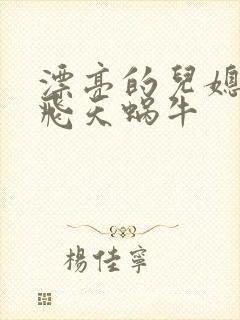 漂亮的兒媳
飛天蝸牛
楊佳寧